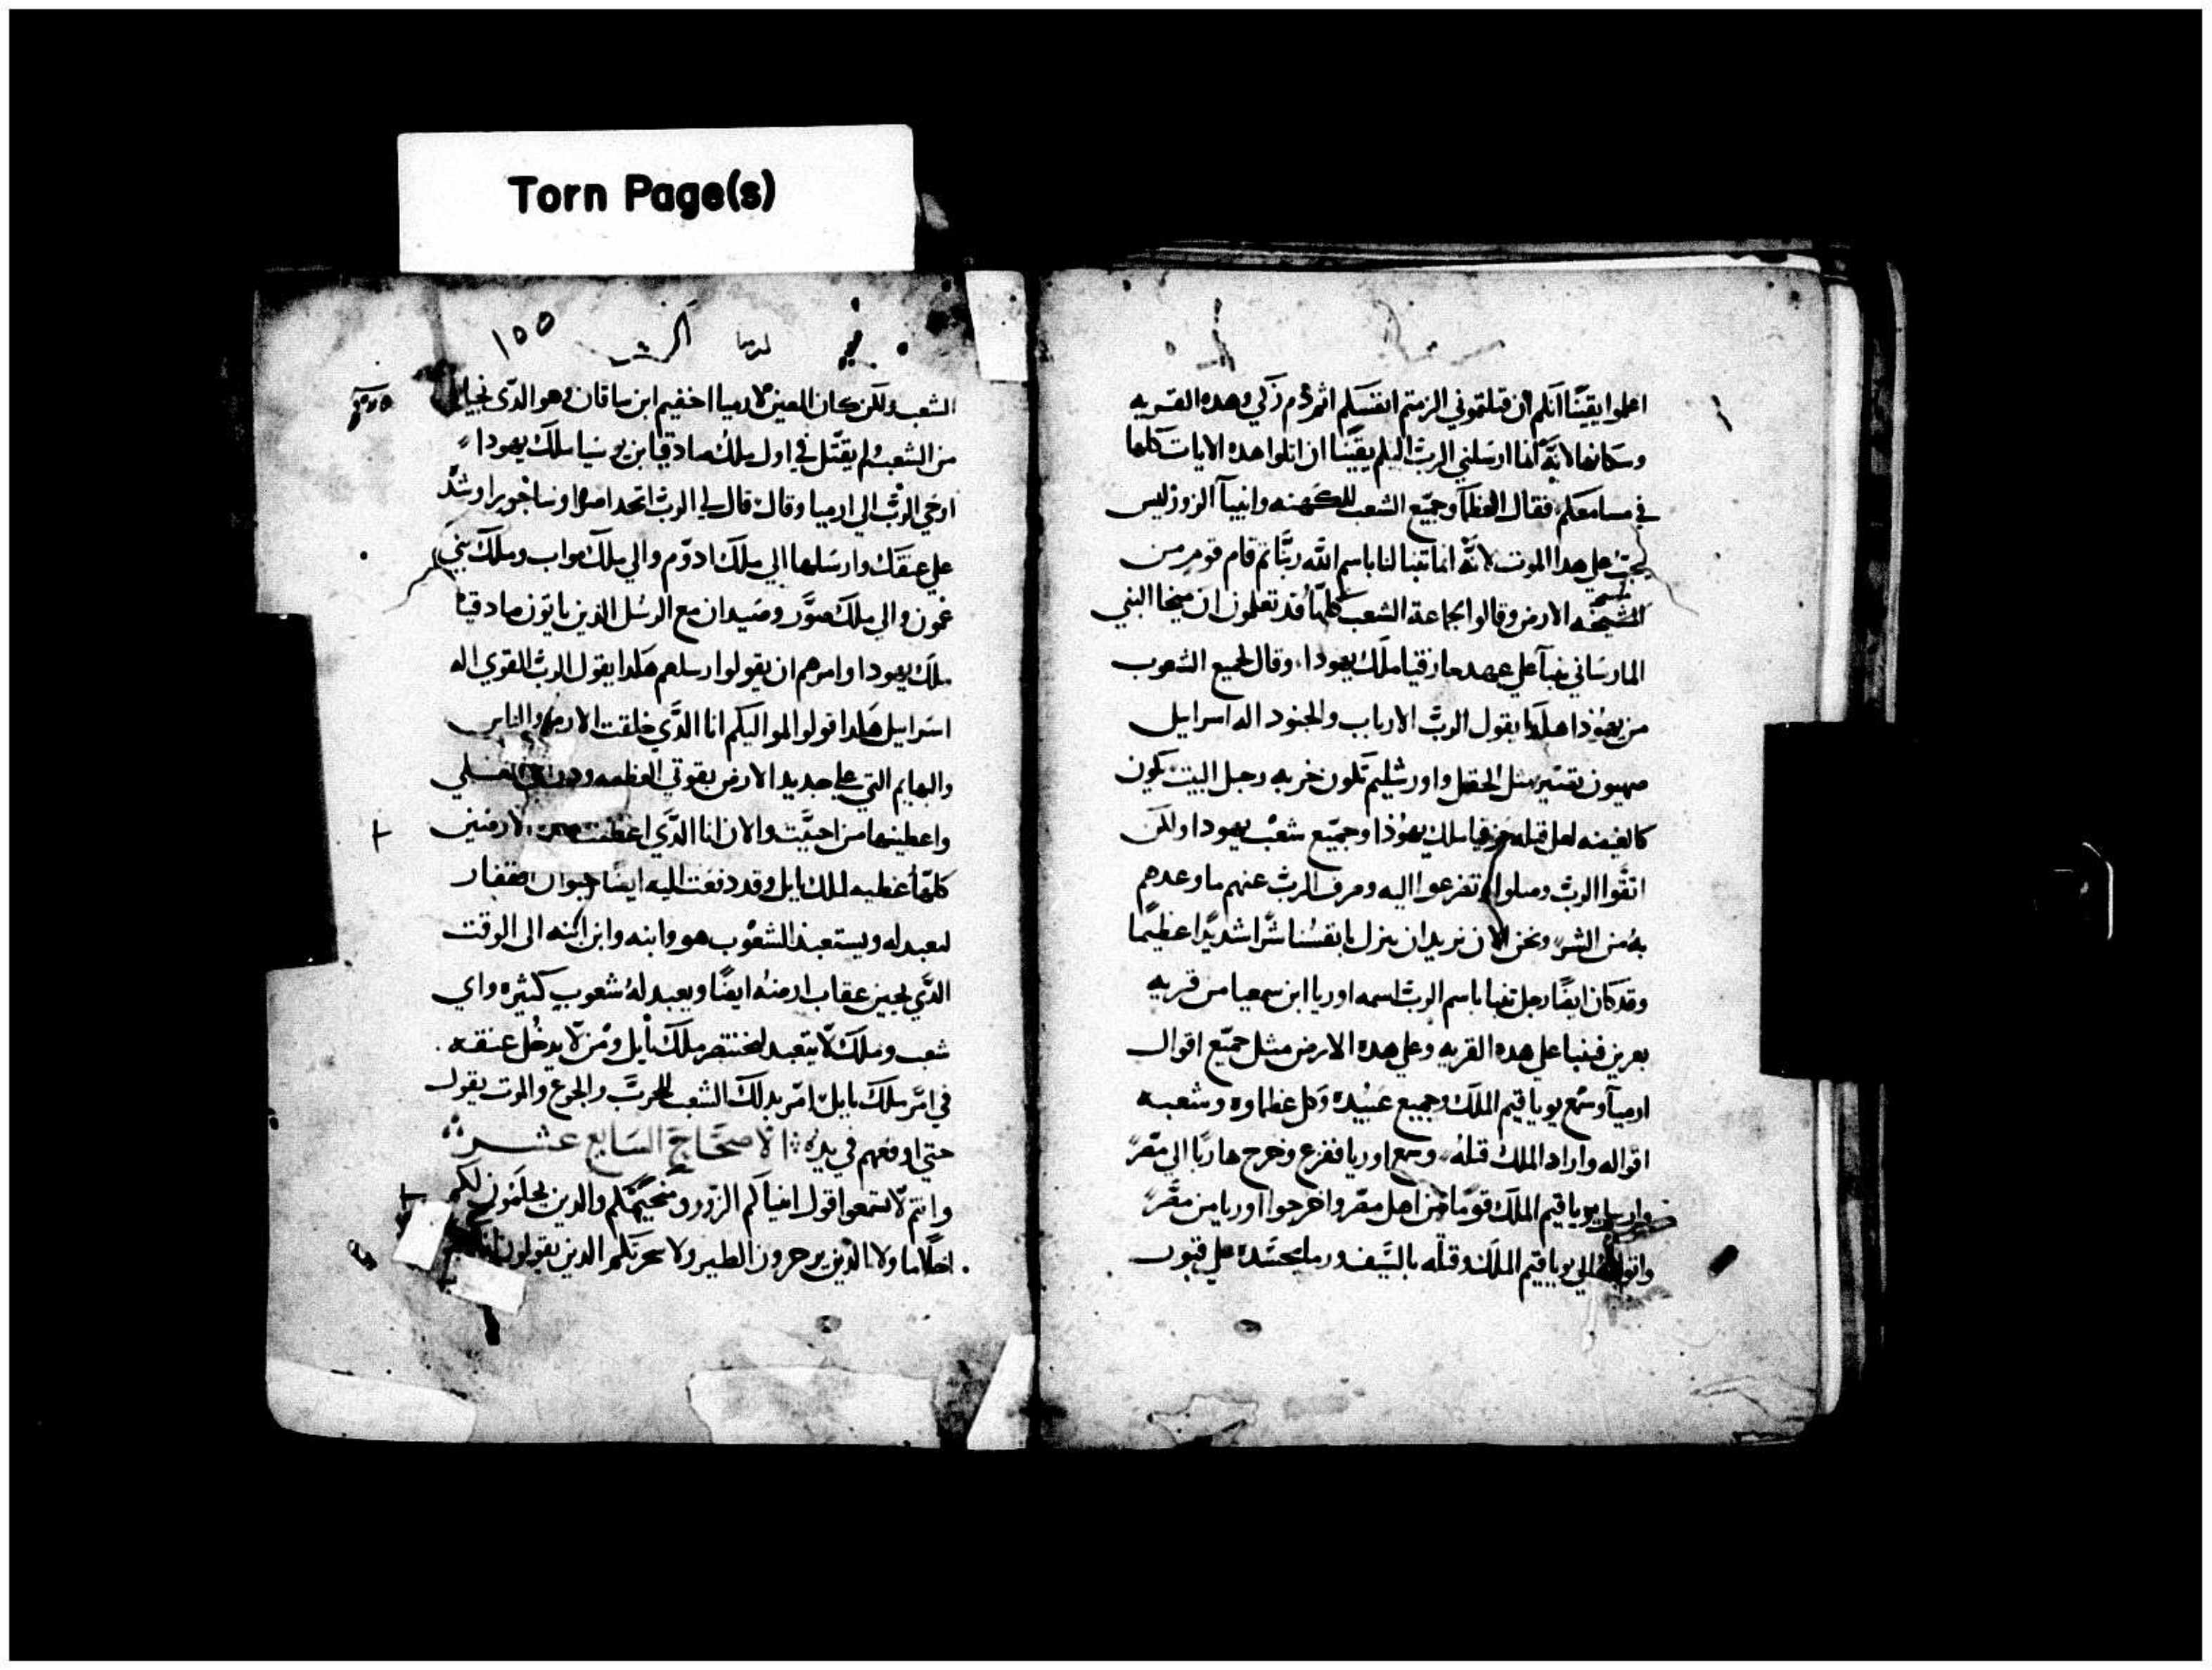 Torn Page(s)
اعلموا يقينًا انكم ان قتلتموني الزمتم انفسكم اثم دم زكي وهده القريه
وسكانها لانه انما ارسلني الرب اليكم يقينًا ان اتلوا هده الايات كلها
في مسامعكم فقال العظمآ وجميع الشعب للكهنه وانبيآ الزور ليس
يجب على هدا الموت لانه انما تنبا لنا باسم الله ربنا ثم قام قوم من
مشيخة الارض وقالوا لجماعة الشعب كلها قد تعلمون ان ميخا النبي
المارساني تنبآ على عهد حازقيا ملك يهودا وقال لجميع الشعوب
من يهودا هكدا يقول الرب الارباب والجنود اله اسراييل
صهيون تصير مثل الحقل واورشليم تكون خربه وجبل البيت يكون
كالغيضه لعل قتله حزقيا ملك يهوذا وجميع شعب يهودا ولكن
اتقوا الرب وصلوا وتضرعوا اليه وصرف الرب عنهم ما وعدهم
به من الشر ونحن الان نريد ان ينزل بانفسنا شرًا شديدًا عظيمًا
وقد كان ايضًا رجل تنبا باسم الرب اسمه اوريا ابن سمعيا من قريه
يعريز فتنبا على هده القريه وعلى هده الارض مثل جميع اقوال
ارميا وسمع يوياقيم الملك وجميع عبيده وكل عظماوه وشعبه
اقواله واراد الملك قتله وسمع اوريا ففزع وخرج هاربًا الى مصر
وارسل يوياقيم الملك قومًا من اهل مصر واخرجوا اوريا من مصر
واتوا به الى يوياقيم الملك وقتله بالسيف ورما بجسده على قبور
١٥٥
ارميا
الشعب ولكن كان المعين لارميا اخقيم ابن سافان وهو الدي نجياه
من الشعب ولم يقتل في اول ملك صادقيا بن يوسيا ملك يهودا
اوحي الرب الى ارميا وقال قال لي الرب اتخد اصرا ونساجوير اوشد
على عنقك وارسلها الى ملك ادوم والى ملك مواب وملك بني
عمون والى ملك صور وصيدان مع الرسل الذين ياتون صادقيا
ملك يهودا وامرهم ان يقولوا ارسلهم هكدا يقول الرب القوي اله
اسراييل هكدا قولوا لمواليكم انا الدي خلقت الارض والناس
والبهايم التي على جديد الارض بقوتي العظيمه
واعطيتها من احببت والان انا الدي اعطيت الارضين
كلها عطيه لملك بابل وقد دفعت اليه ايضًا حيوان القفار
ليعبد له ويستعبد الشعوب هو وابنه وابن ابنه الى الوقت
الدي يجيز عقاب ارضه ايضًا ويعبد له شعوب كثيره واي
شعب وملك لا يتعبد لبختنصر ملك بابل ومن لا يدخل عنقه
في امر ملك بابل امر بدلك الشعب للحرب والجوع والموت يقول
حتى ادفعهم في يده الاصحاح السابع عشر
وانتم لا تسمعوا قول انبياكم الزور ومنجميكم والدين يحلمون لكم
احلاما ولا الدين يزجرون الطير ولا سحرتكم الدين يقولون